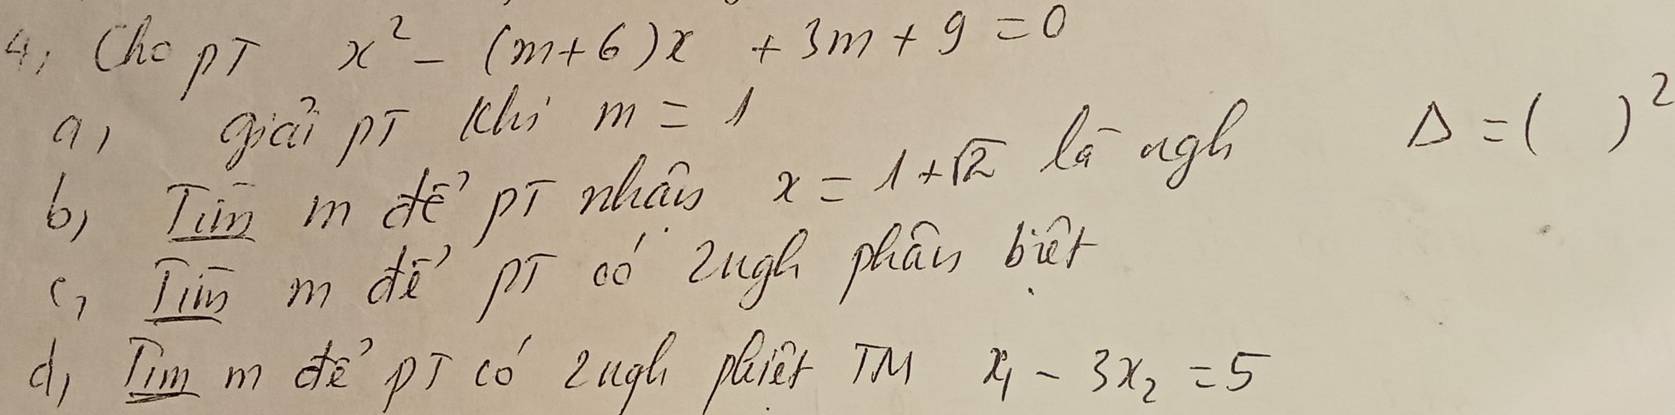 4, Cho pT x² - (m+6)x + 3m + 9 = 0
a, giải pT khi m = 1
Δ = ( )²
b, Tìm m để pT nhận x = 1+√2 là ngh
c, Tìm m để pT có 2ngh phân biệt
d, Tìm m để pT có 2ngh pbiệt TM x₁ - 3x₂ = 5